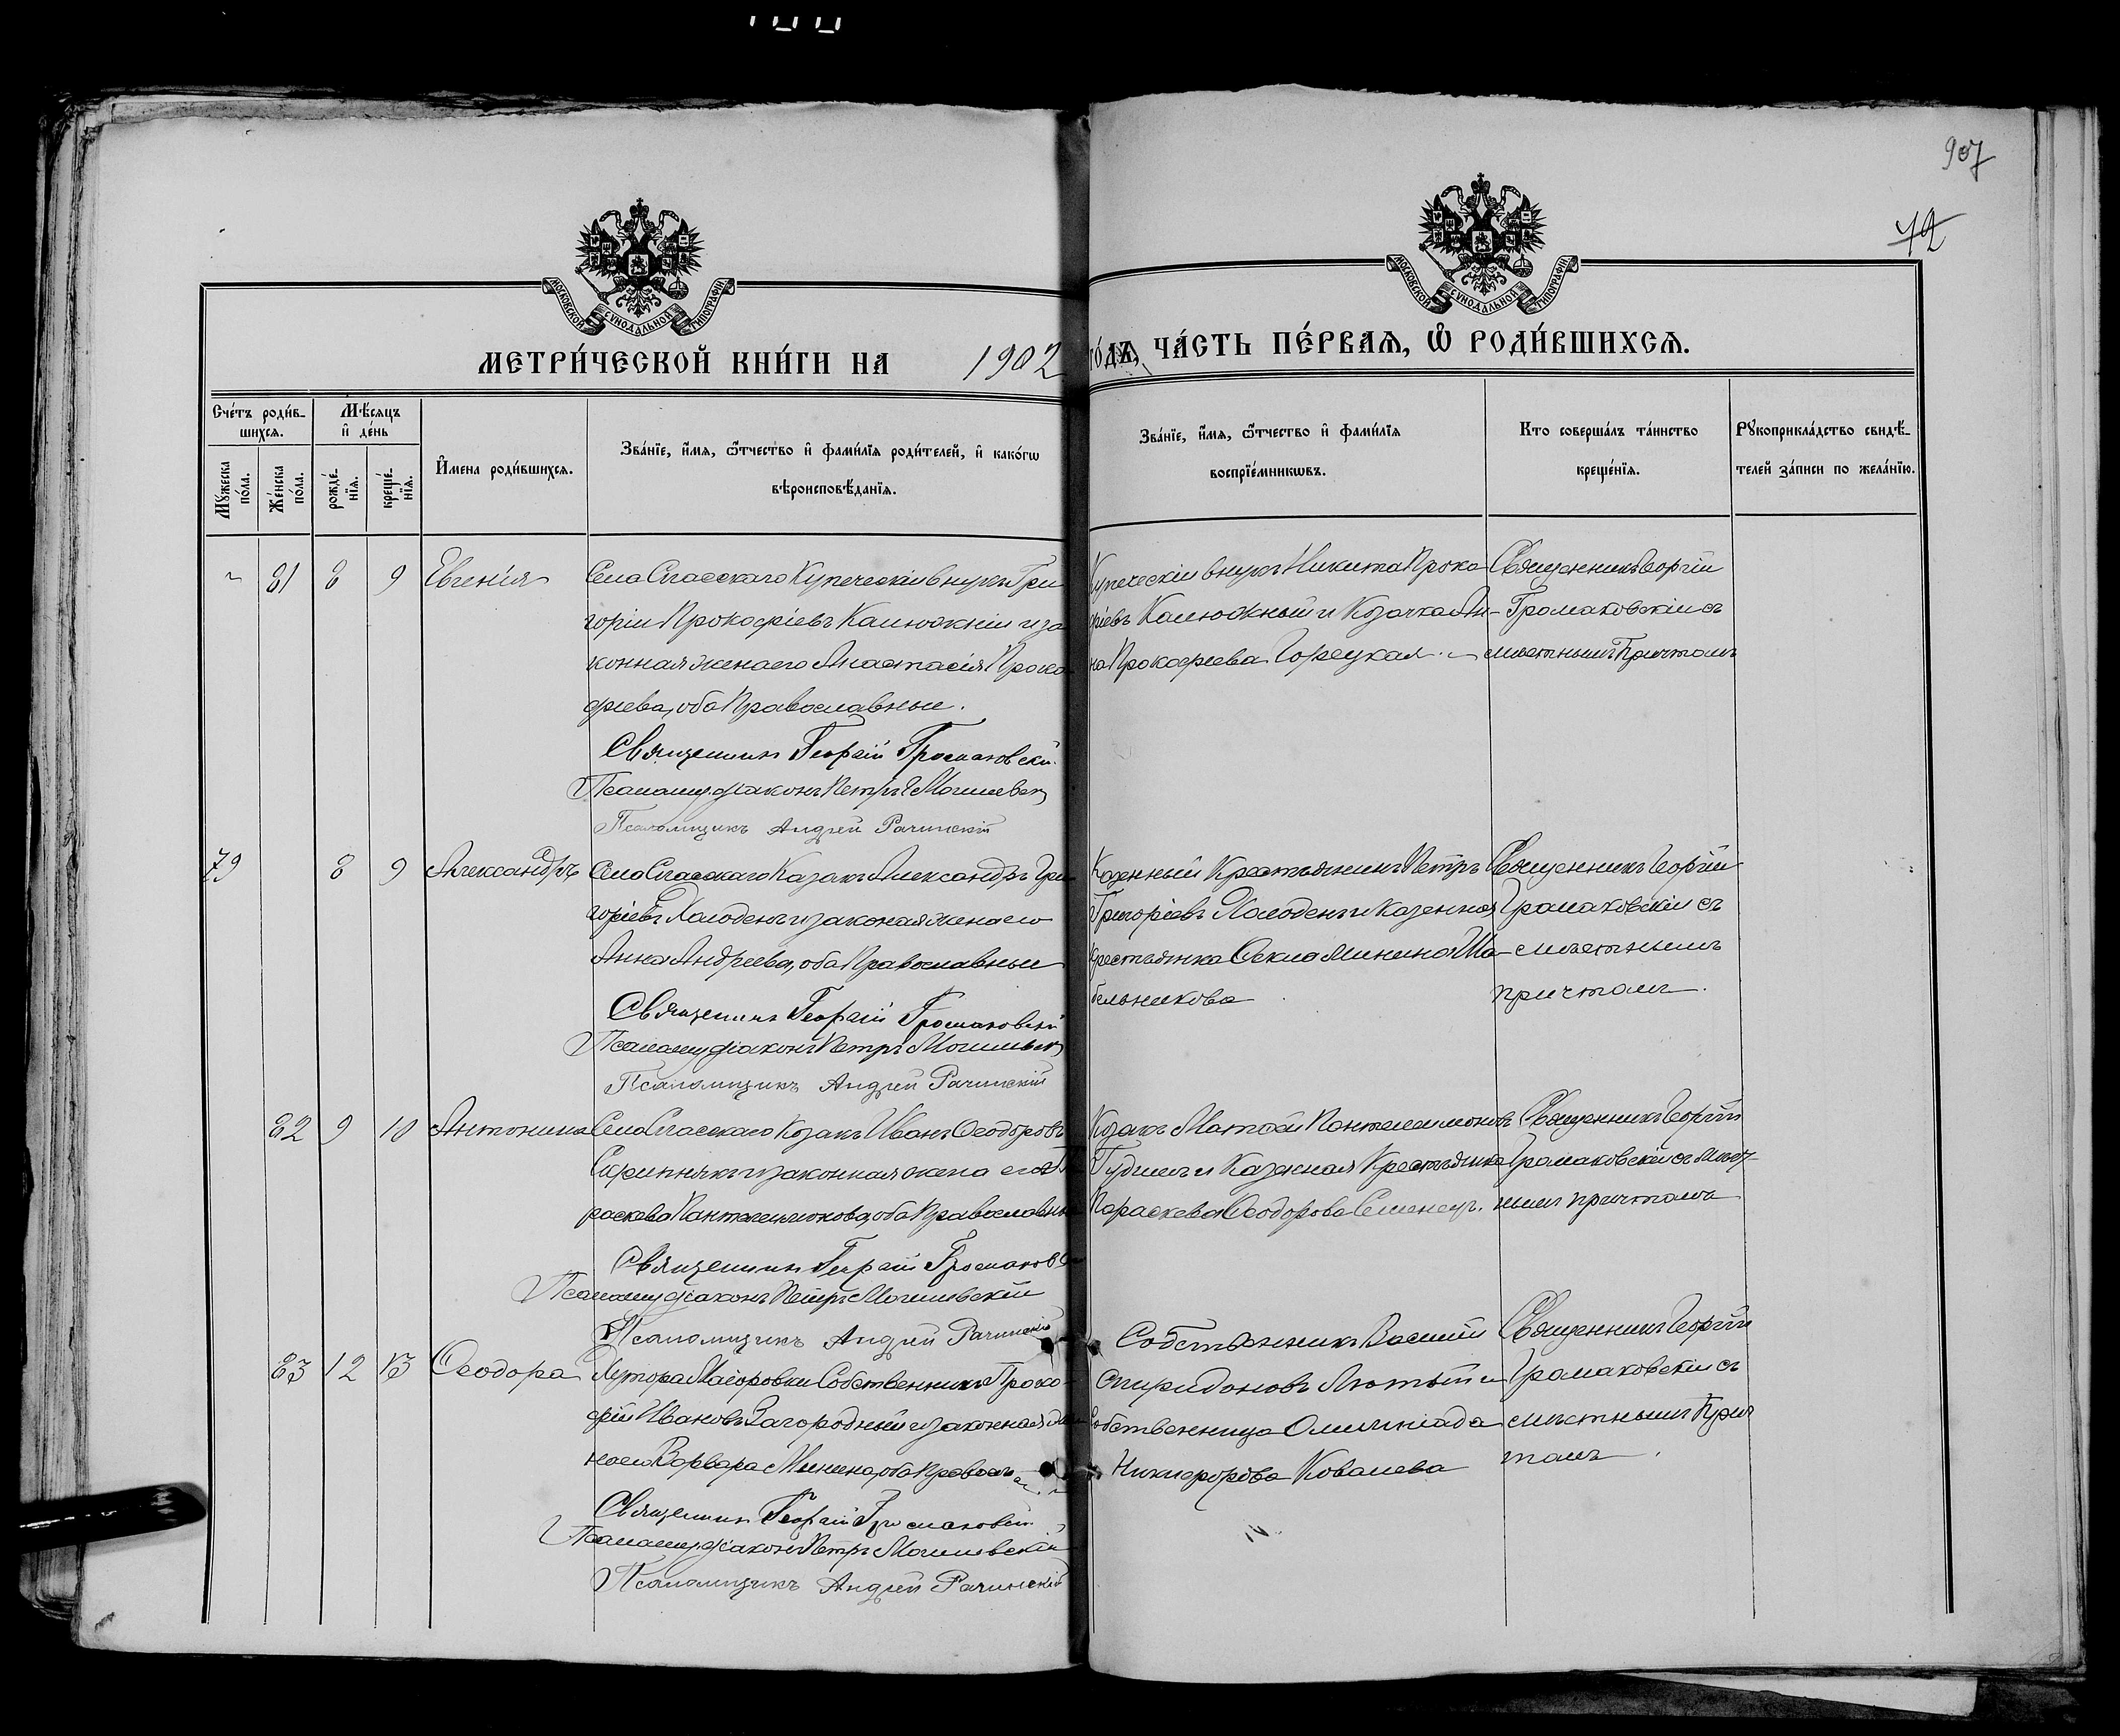 907
72
МОСКОВСКОЙ СѴНОДАЛЬНОЙ ТИПОГРАФІИ
МОСКОВСКОЙ СѴНОДАЛЬНОЙ ТИПОГРАФІИ
МЕТРИ́ЧЕСКОЙ КНИ́ГИ НА 1902 го́дъ, ЧА́СТЬ ПЕ́РВАЯ, Ѡ РОДИ́ВШИХСЯ.
Сче́тъ роди́в-
шихся.
Мѣ́сяцъ
и҆ де́нь
Мꙋ́жеска
по́ла.
Же́нска
по́ла.
рожде́-
нїя.
креще́-
нїя.
И҆мена роди́вшихся.
Зва́нїе, и҆́мя, ѻ҆́тчество и҆ фами́лїя роди́телей, и҆ како́гѡ
вѣроисповѣ́данїя.
Зва́нїе, и҆́мя, ѻ҆́тчество и҆ фами́лїя
воспрїе́мникѡвъ.
Кто соверша́лъ та́инство
креще́нїя.
Рꙋкоприкла́дство свидѣ́-
телей за́писи по жела́нїю.
81 8 9 Евгенія
Села Спасскаго Купеческій внукъ Гри
горій Прокофіевъ Калюжній и за
конная жена его Анастасія Проко
фіева, оба Православные.
Священникъ Георгій Громаковскій
Псаломщ. діаконъ Петръ Могилевскій
Псаломщикъ Андрей Рачинскій
Купеческій внукъ Никита Проко
фіевъ Калюжный и Козачка Ан-
на Прокофіева Горецкая.
Священникъ Георгій
Громаковскій съ
мѣстнымъ Причтомъ
79 8 9 Александръ
Села Спасскаго Казакъ Александръ Гри
горіевъ Холоденъ и законая жена его
Анна Андреева, оба Православные
Священникъ Георгій Громаковскій
Псаломщ діаконъ Петръ Могилевскій
Псаломщикъ Андрей Рачинскій
Казенный Крестьянинъ Петръ
Григоріевъ Холоденъ и Казенная
крестьянка Ѳекла Минина Ша-
бельникова
Священникъ Георгій
Громаковскій съ
мѣстнымъ
причтомъ.
82 9 10 Антонина
Села Спасскаго Козакъ Иванъ Ѳеодоровъ
Скрипнякъ и законная жена его Па
раскева Пантелеимонова, оба Православные
Священникъ Георгій Громаковскій
Псаломщ діаконъ Петръ Могилевскій
Псаломщикъ Андрей Рачинскій
Козакъ Матѳей Пантелеимоновъ
Гудимъ и Казенная Крестьянка
Параскева Ѳеодорова
Священникъ Георгій
Громаковскій съ мѣст-
нымъ причтомъ
83 12 13 Ѳеодора
Хутора Маіоровки Собственникъ Проко-
фій Ивановъ Загородный и законная же
на его Варвара Минина, оба Православ
Священникъ Георгій Громаковскій
Псаломщ. діаконъ Петръ Могилевскій
Псаломщикъ Андрей Рачинскій
Собственникъ Василій
Спиридоновъ Лютый и
Собственница Олимпіада
Никифорова Ковалева
Священникъ Георгій
Громаковскій съ
мѣстнымъ Прич
томъ.